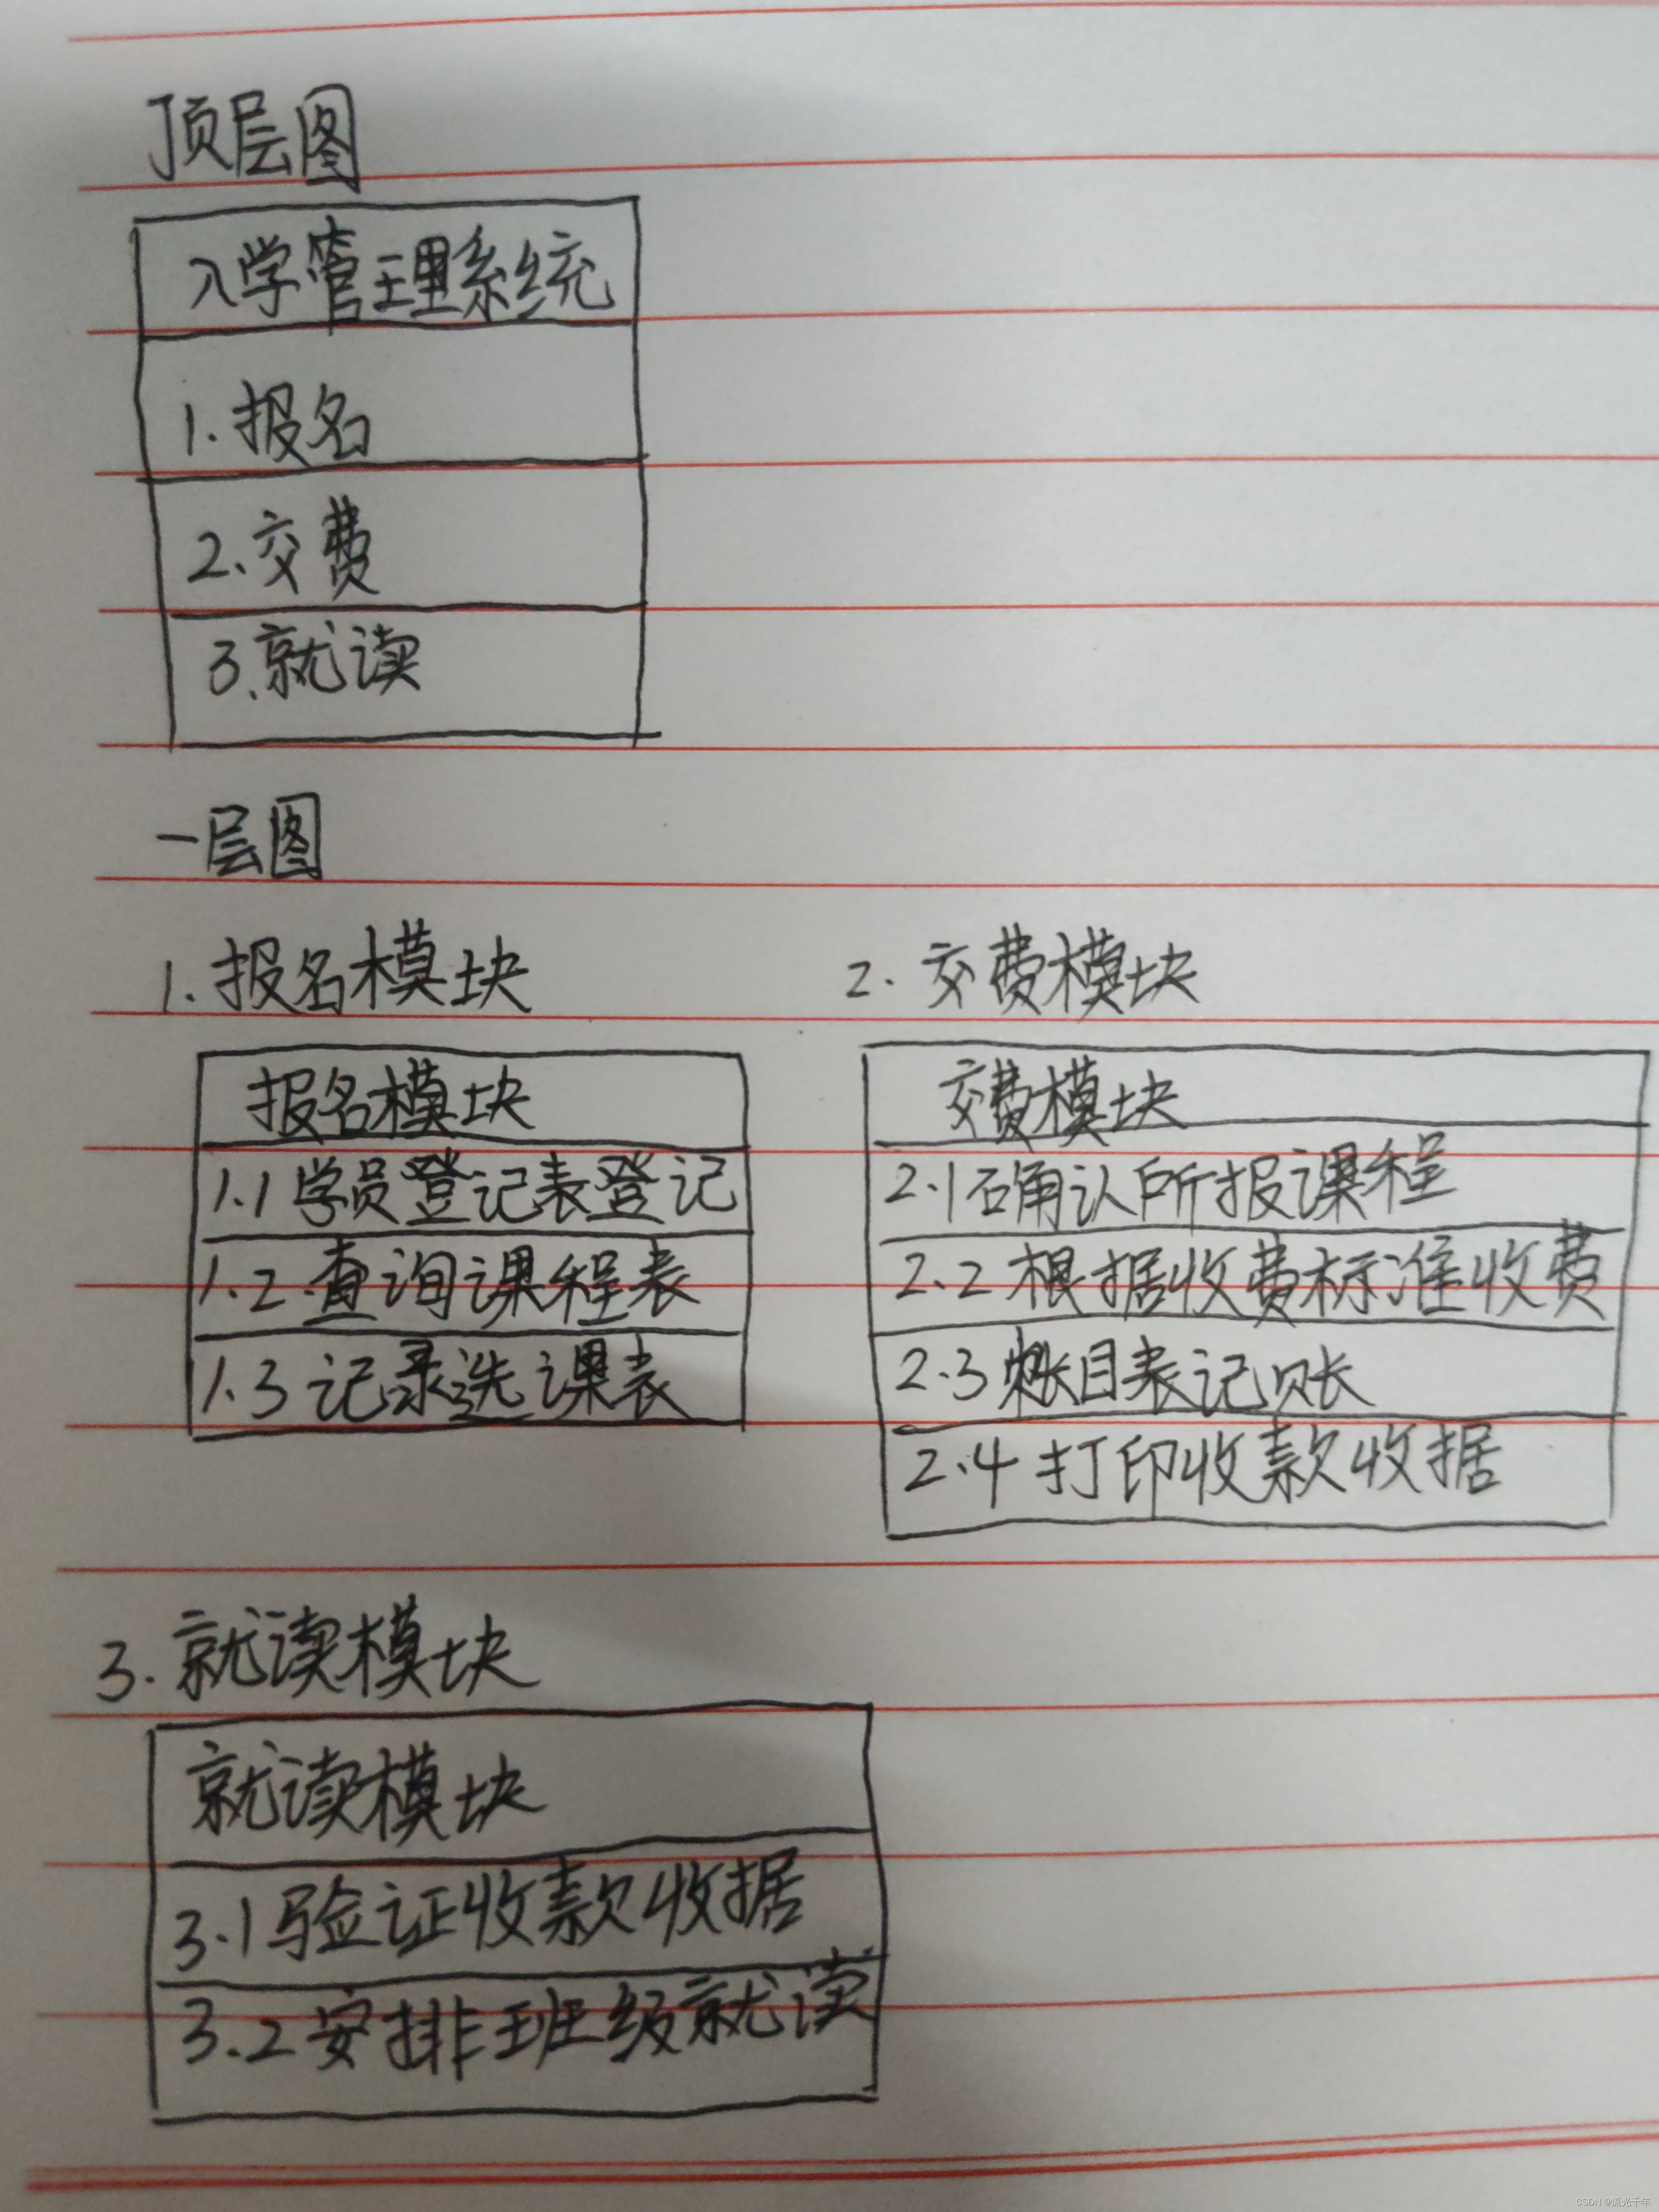 顶层图
入学管理系统
1.报名
2.交费
3.就读
一层图
1.报名模块
2.交费模块
报名模块
1.1学员登记表登记
1.2查询课程表
1.3记录选课表
交费模块
2.1确认所报课程
2.2根据收费标准收费
2.3账目表记账
2.4打印收款收据
3.就读模块
就读模块
3.1验证收款收据
3.2安排班级就读
CSDN @流光千年